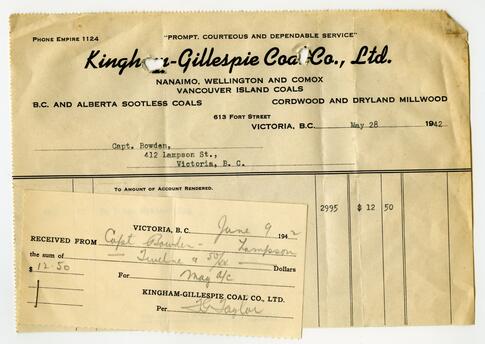 PHONE EMPIRE 1124
"PROMPT, COURTEOUS AND DEPENDABLE SERVICE"
Kingham-Gillespie Coal Co., Ltd.
NANAIMO, WELLINGTON AND COMOX
VANCOUVER ISLAND COALS
B.C. AND ALBERTA SOOTLESS COALS
CORDWOOD AND DRYLAND MILLWOOD
613 FORT STREET
VICTORIA, B.C. May 28 1942
Capt. Bowden,
412 Lampson St.,
Victoria, B. C.
TO AMOUNT OF ACCOUNT RENDERED.
2995 $ 12 50
VICTORIA, B.C. June 9 1942
RECEIVED FROM Capt Bowden - Lampson
the sum of — Twelve & 50/xx — Dollars
$12.50 For May a/c
KINGHAM-GILLESPIE COAL CO., LTD.
Per Taylor